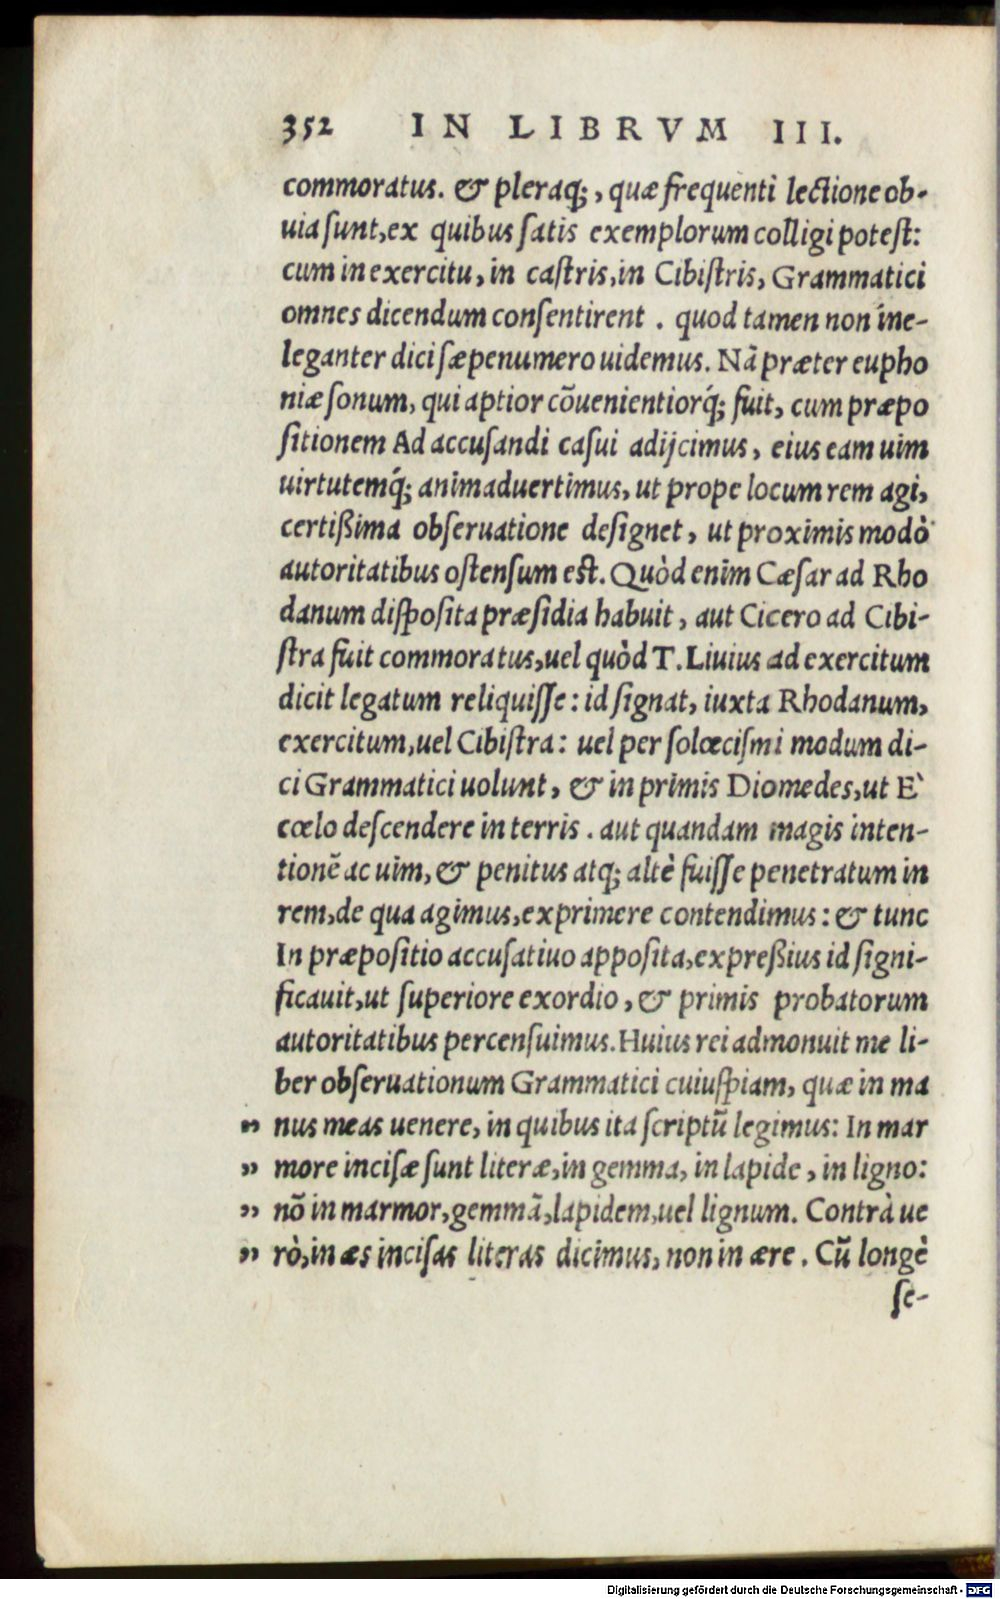 352 IN LIBRVM III.
commoratus. & pleraq;, quæ frequenti lectione ob-
uia sunt,ex quibus satis exemplorum colligi potest:
cum in exercitu, in castris,in Cibistris, Grammatici
omnes dicendum consentirent . quod tamen non ine-
leganter dici sæpenumero uidemus. Nã præter eupho
niæ sonum, qui aptior cõuenientiorq́; fuit, cum præpo
sitionem Ad accusandi casui adijcimus, eius eam uim
uirtutemq́; animaduertimus, ut prope locum rem agi,
certißima obseruatione designet, ut proximis modò
autoritatibus ostensum est. Quòd enim Cæsar ad Rho
danum disposita præsidia habuit, aut Cicero ad Cibi-
stra fuit commoratus,uel quòd T. Liuius ad exercitum
dicit legatum reliquisse: id signat, iuxta Rhodanum,
exercitum,uel Cibistra: uel per solœcismi modum di-
ci Grammatici uolunt, & in primis Diomedes,ut E`
cœlo descendere in terris . aut quandam magis inten-
tionẽ ac uim, & penitus atq; altè fuisse penetratum in
rem,de qua agimus,exprimere contendimus: & tunc
In præpositio accusatiuo apposita,expreßius id signi-
ficauit,ut superiore exordio, & primis probatorum
autoritatibus percensuimus.Huius rei admonuit me li-
ber obseruationum Grammatici cuiuspiam, quæ in ma
„ nus meas uenere, in quibus ita scriptũ legimus: In mar
„ more incisæ sunt literæ,in gemma, in lapide, in ligno:
„ nõ in marmor,gemmã,lapidem,uel lignum. Contrà ue
„ rò,in æs incisas literas dicimus, non in ære. Cũ longè
se-
Digitalisierung gefördert durch die Deutsche Forschungsgemeinschaft - DFG